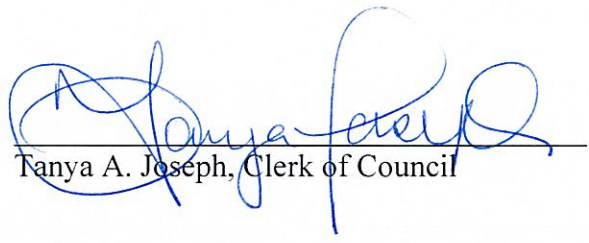 Tanya Joseph
Tanya A. Joseph, Clerk of Council